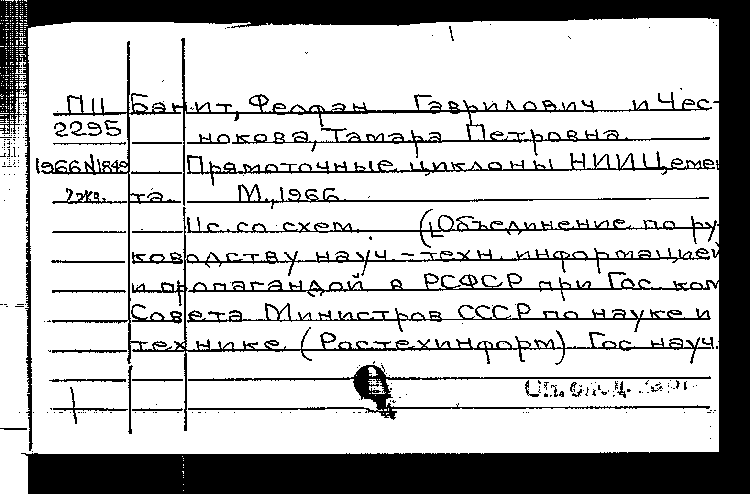 П11 Банит, Феофан Гаврилович и Чес-
2295 нокова, Тамара Петровна.
1966 N1849 Прямоточные циклоны НИИЦемен
2 экз. та. М., 1966.
11с. со схем. (Объединение по ру-
ководству науч-техн. информацией
и пропагандой в РСФСР при Гос. ком
Совета Министров СССР по науке и
технике (Ростехинформ). Гос науч.